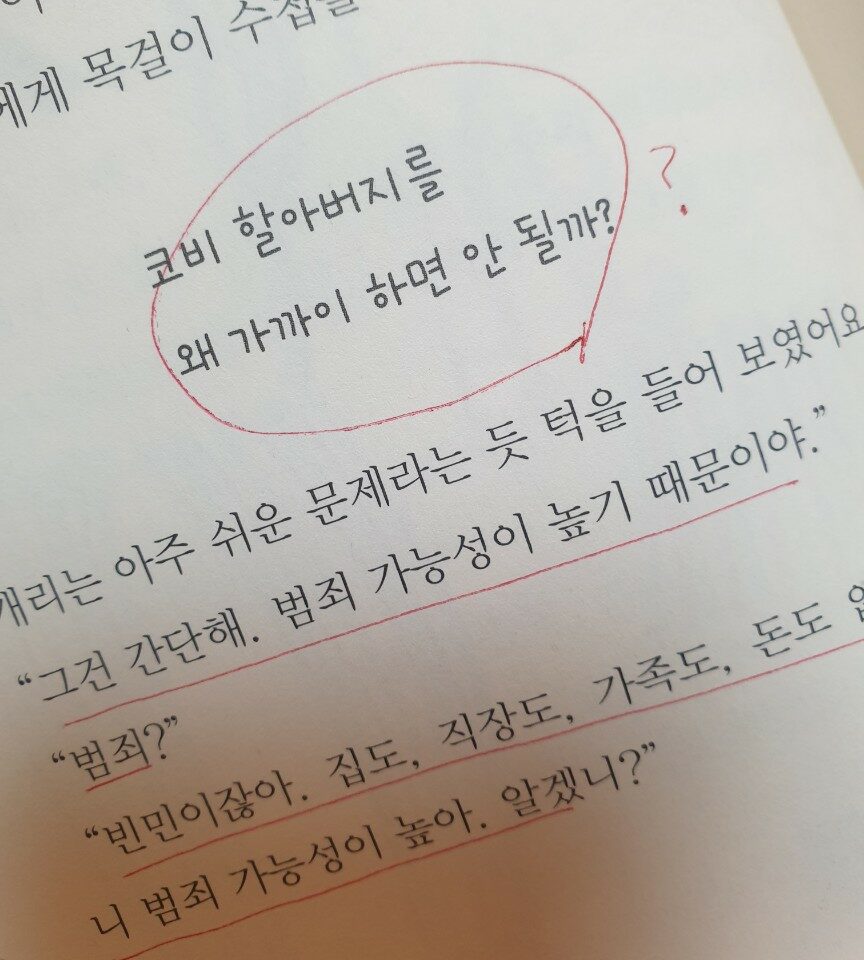 에게 목걸이 수첩을
코비 할아버지를
왜 가까이 하면 안 될까?
?
개리는 아주 쉬운 문제라는 듯 턱을 들어 보였어요
“그건 간단해. 범죄 가능성이 높기 때문이야.”
“범죄?”
“빈민이잖아. 집도, 직장도, 가족도, 돈도
니 범죄 가능성이 높아. 알겠니?”